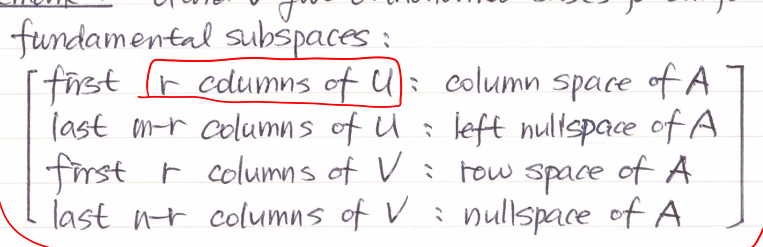 fundamental subspaces :
first r columns of U : column space of A
last m-r columns of U : left nullspace of A
first r columns of V : row space of A
last n-r columns of V : nullspace of A